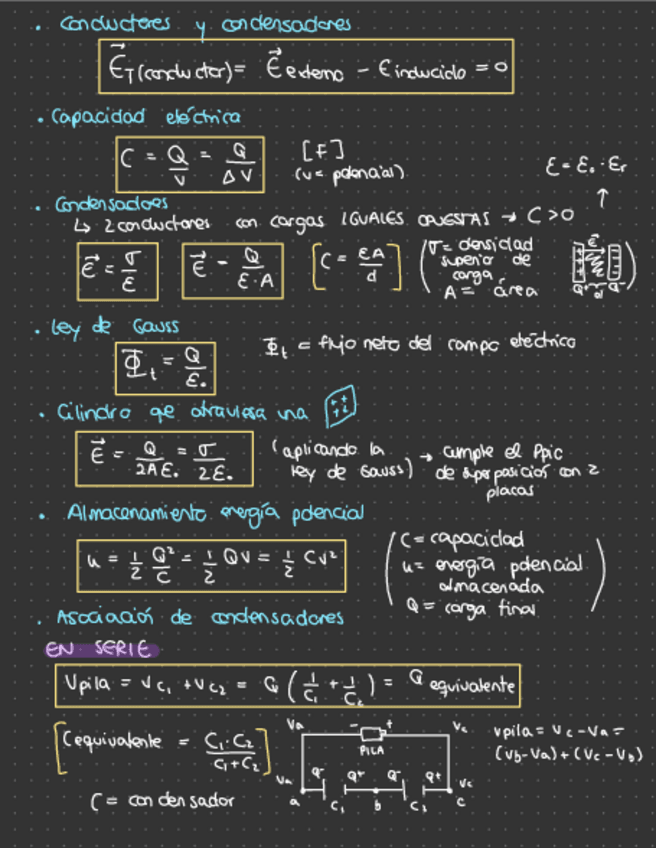 . Conductores y condensadores
E⃗T(conductor) = E⃗externo - Einducido = 0
. Capacidad eléctrica
C = Q/V = Q/ΔV [F]
(V = potencial)
ε = ε₀ · εr
↑
. Condensadores
↳ 2 conductores con cargas IGUALES OPUESTAS → C > 0
E⃗ = σ/ε E⃗ = Q/(ε·A) [C = εA/d] (σ = densidad superior de carga
A = área)
E⃗
Q⁺ d Q⁻
. Ley de Gauss
Φt = Q/ε₀ Φt = flujo neto del campo eléctrico
. Cilindro que atraviesa una
E⃗ = Q/2Aε₀ = σ/2ε₀ (aplicando la ley de Gauss) → cumple el Ppio de superposición con 2 placas
. Almacenamiento energía potencial
u = 1/2 Q²/C = 1/2 QV = 1/2 CV²
(C = capacidad
u = energía potencial almacenada
Q = carga final)
. Asociación de condensadores
EN SERIE
Vpila = Vc₁ + Vc₂ = Q (1/C₁ + 1/C₂) = Q equivalente
[Cequivalente = C₁·C₂/(C₁+C₂)]
C = condensador
Va - + Vc
PILA
Va Q⁻ Q⁺ Q⁻ Q⁺ Vc
a C₁ b c
Vpila = Vc - Va =
(Vb - Va) + (Vc - Vb)